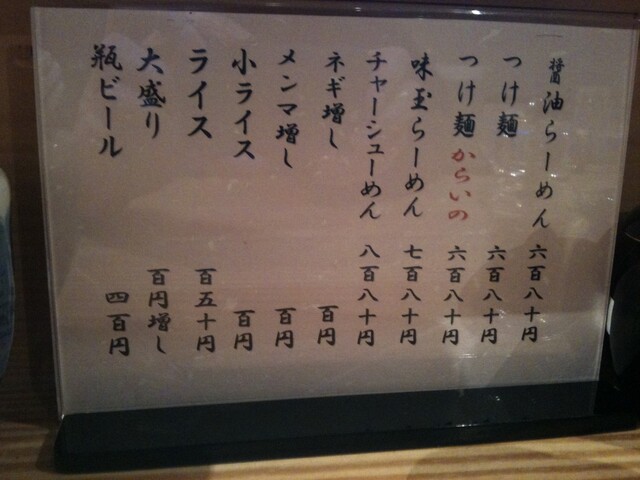 醤油らーめん 六百八十円
つけ麺 六百八十円
つけ麺 からいの 六百八十円
味玉らーめん 七百八十円
チャーシューめん 八百八十円
ネギ増し 百円
メンマ増し 百円
小ライス 百円
ライス 百五十円
大盛り 百円増し
瓶ビール 四百円